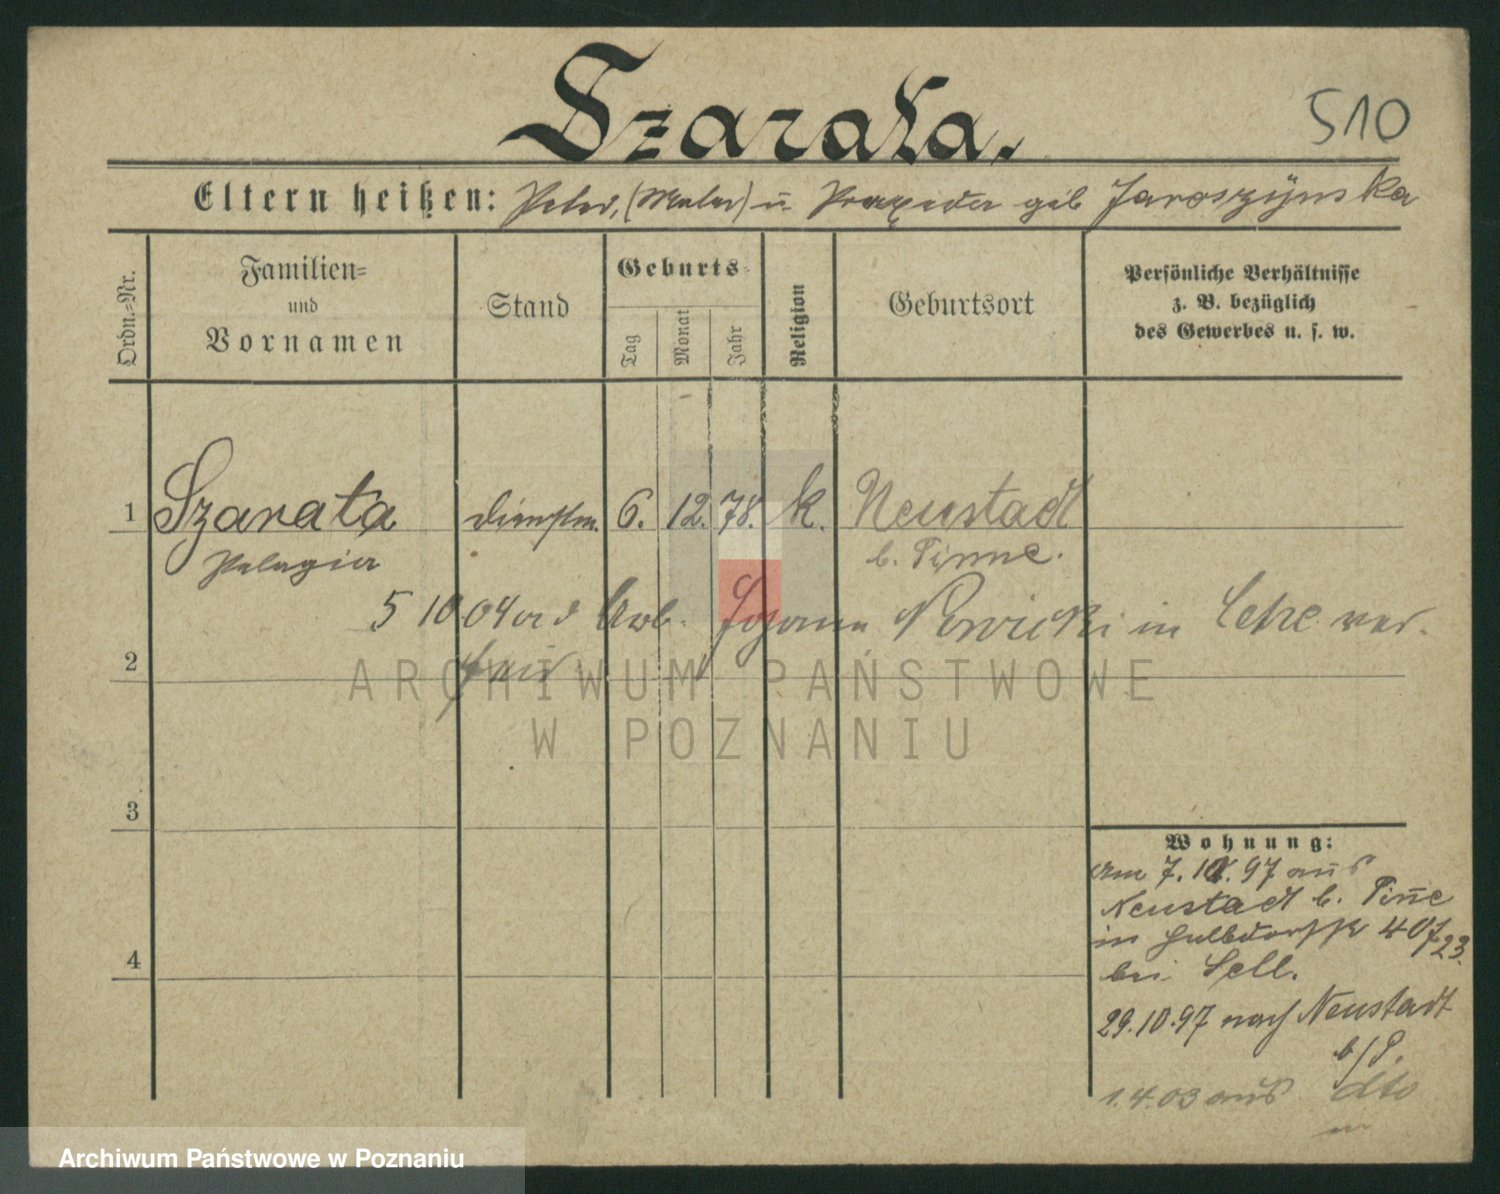 Szarata.
510
Eltern heißen: Peter, (Maler) u. Praxeda geb Jaroszynska
Ordn.=Nr.
Familien=
und
Vornamen
Stand
Geburts=
Tag
Monat
Jahr
Religion
Geburtsort
Persönliche Verhältnisse
z. B. bezüglich
des Gewerbes u. s. w.
1 Szarata dienstm. 6. 12. 78. k. Neustadt
Pelagia b. Pinne.
5 10 04 a d Arb. Nowicki in ver.
2
ARCHIWUM PAŃSTWOWE
W POZNANIU
3
4
Wohnung:
am 7. 10. 97 aus
Neustadt b. Pinne
in 40
bei Sell.
29.10.97 nach Neustadt
b/P.
1.4.03 aus dto
Archiwum Państwowe w Poznaniu